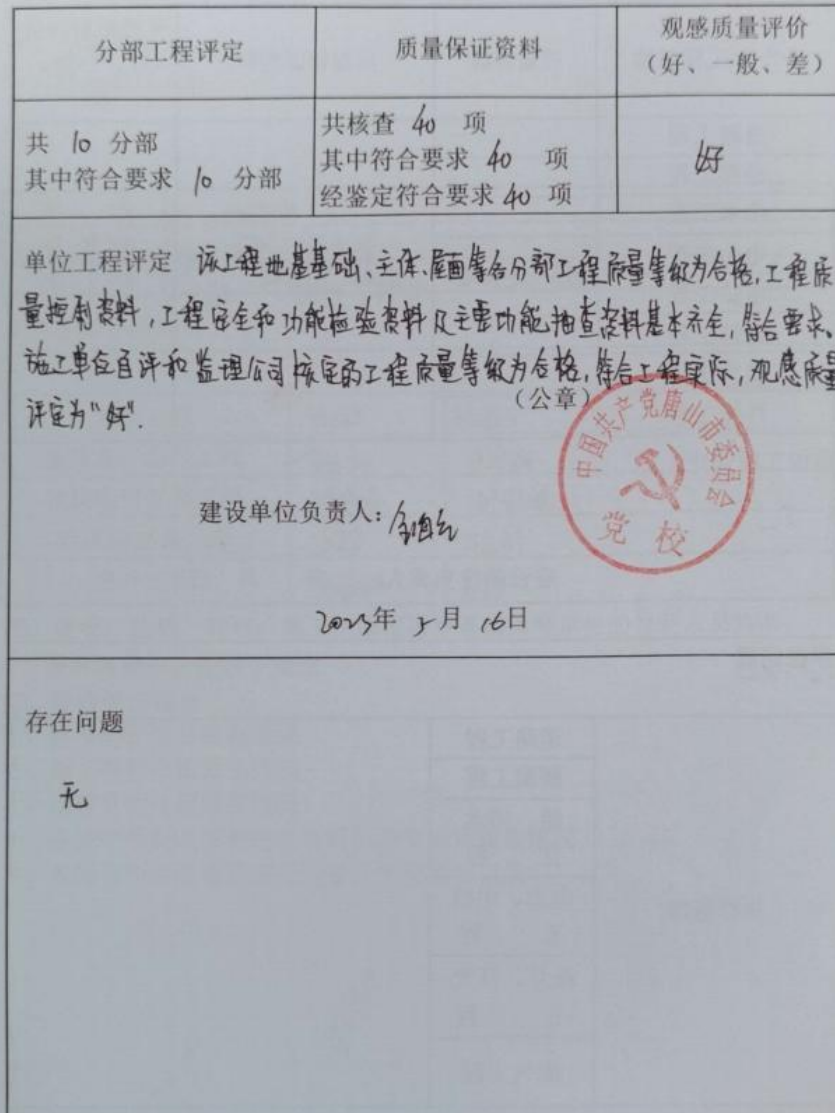 分部工程评定
质量保证资料
观感质量评价
（好、一般、差）
共 10 分部
其中符合要求 10 分部
共核查 40 项
其中符合要求 40 项
经鉴定符合要求 40 项
好
单位工程评定 该工程地基基础、主体、屋面等各分部工程质量等级为合格，工程质
量控制资料，工程安全和功能检验资料及主要功能抽查资料基本齐全，符合要求。
施工单位自评和监理公司核定的工程质量等级为合格，符合工程实际，观感质量
评定为"好".
（公章）
中国共产党唐山市委员会
党校
建设单位负责人：
2023年 5月 16日
存在问题
无